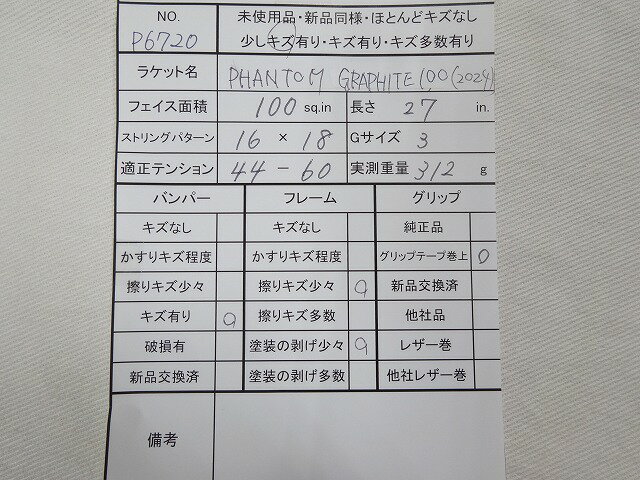 NO. 未使用品・新品同様・ほとんどキズなし
P6720 少しキズ有り・キズ有り・キズ多数有り
ラケット名 PHANTOM GRAPHITE 100 (2024)
フェイス面積 100 sq.in 長さ 27 in.
ストリングパターン 16 × 18 Gサイズ 3
適正テンション 44 - 60 実測重量 312 g
バンパー フレーム グリップ
キズなし キズなし 純正品
かすりキズ程度 かすりキズ程度 グリップテープ巻上 O
擦りキズ少々 擦りキズ少々 O 新品交換済
キズ有り O 擦りキズ多数 他社品
破損有 塗装の剥げ少々 O レザー巻
新品交換済 塗装の剥げ多数 他社レザー巻
備考